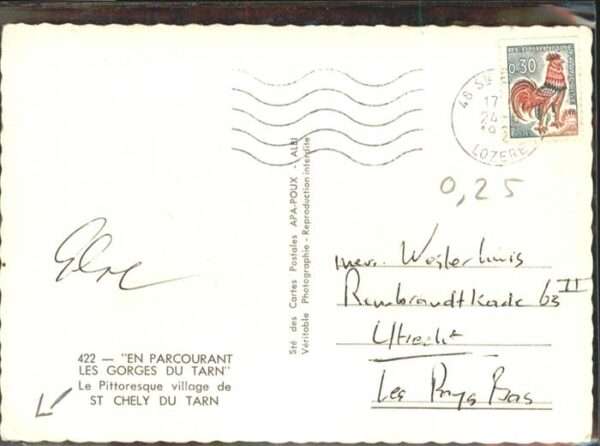 0,30
48 S
17
24
LOZERE
0,25
Sté des Cartes Postales APA-POUX - ALBI
Véritable Photographie - Reproduction interdite
mevr. Westerhuis
Rembrandtkade 63 II
Utrecht
Les Pays Bas
422 — "EN PARCOURANT
LES GORGES DU TARN"
Le Pittoresque village de
ST CHELY DU TARN